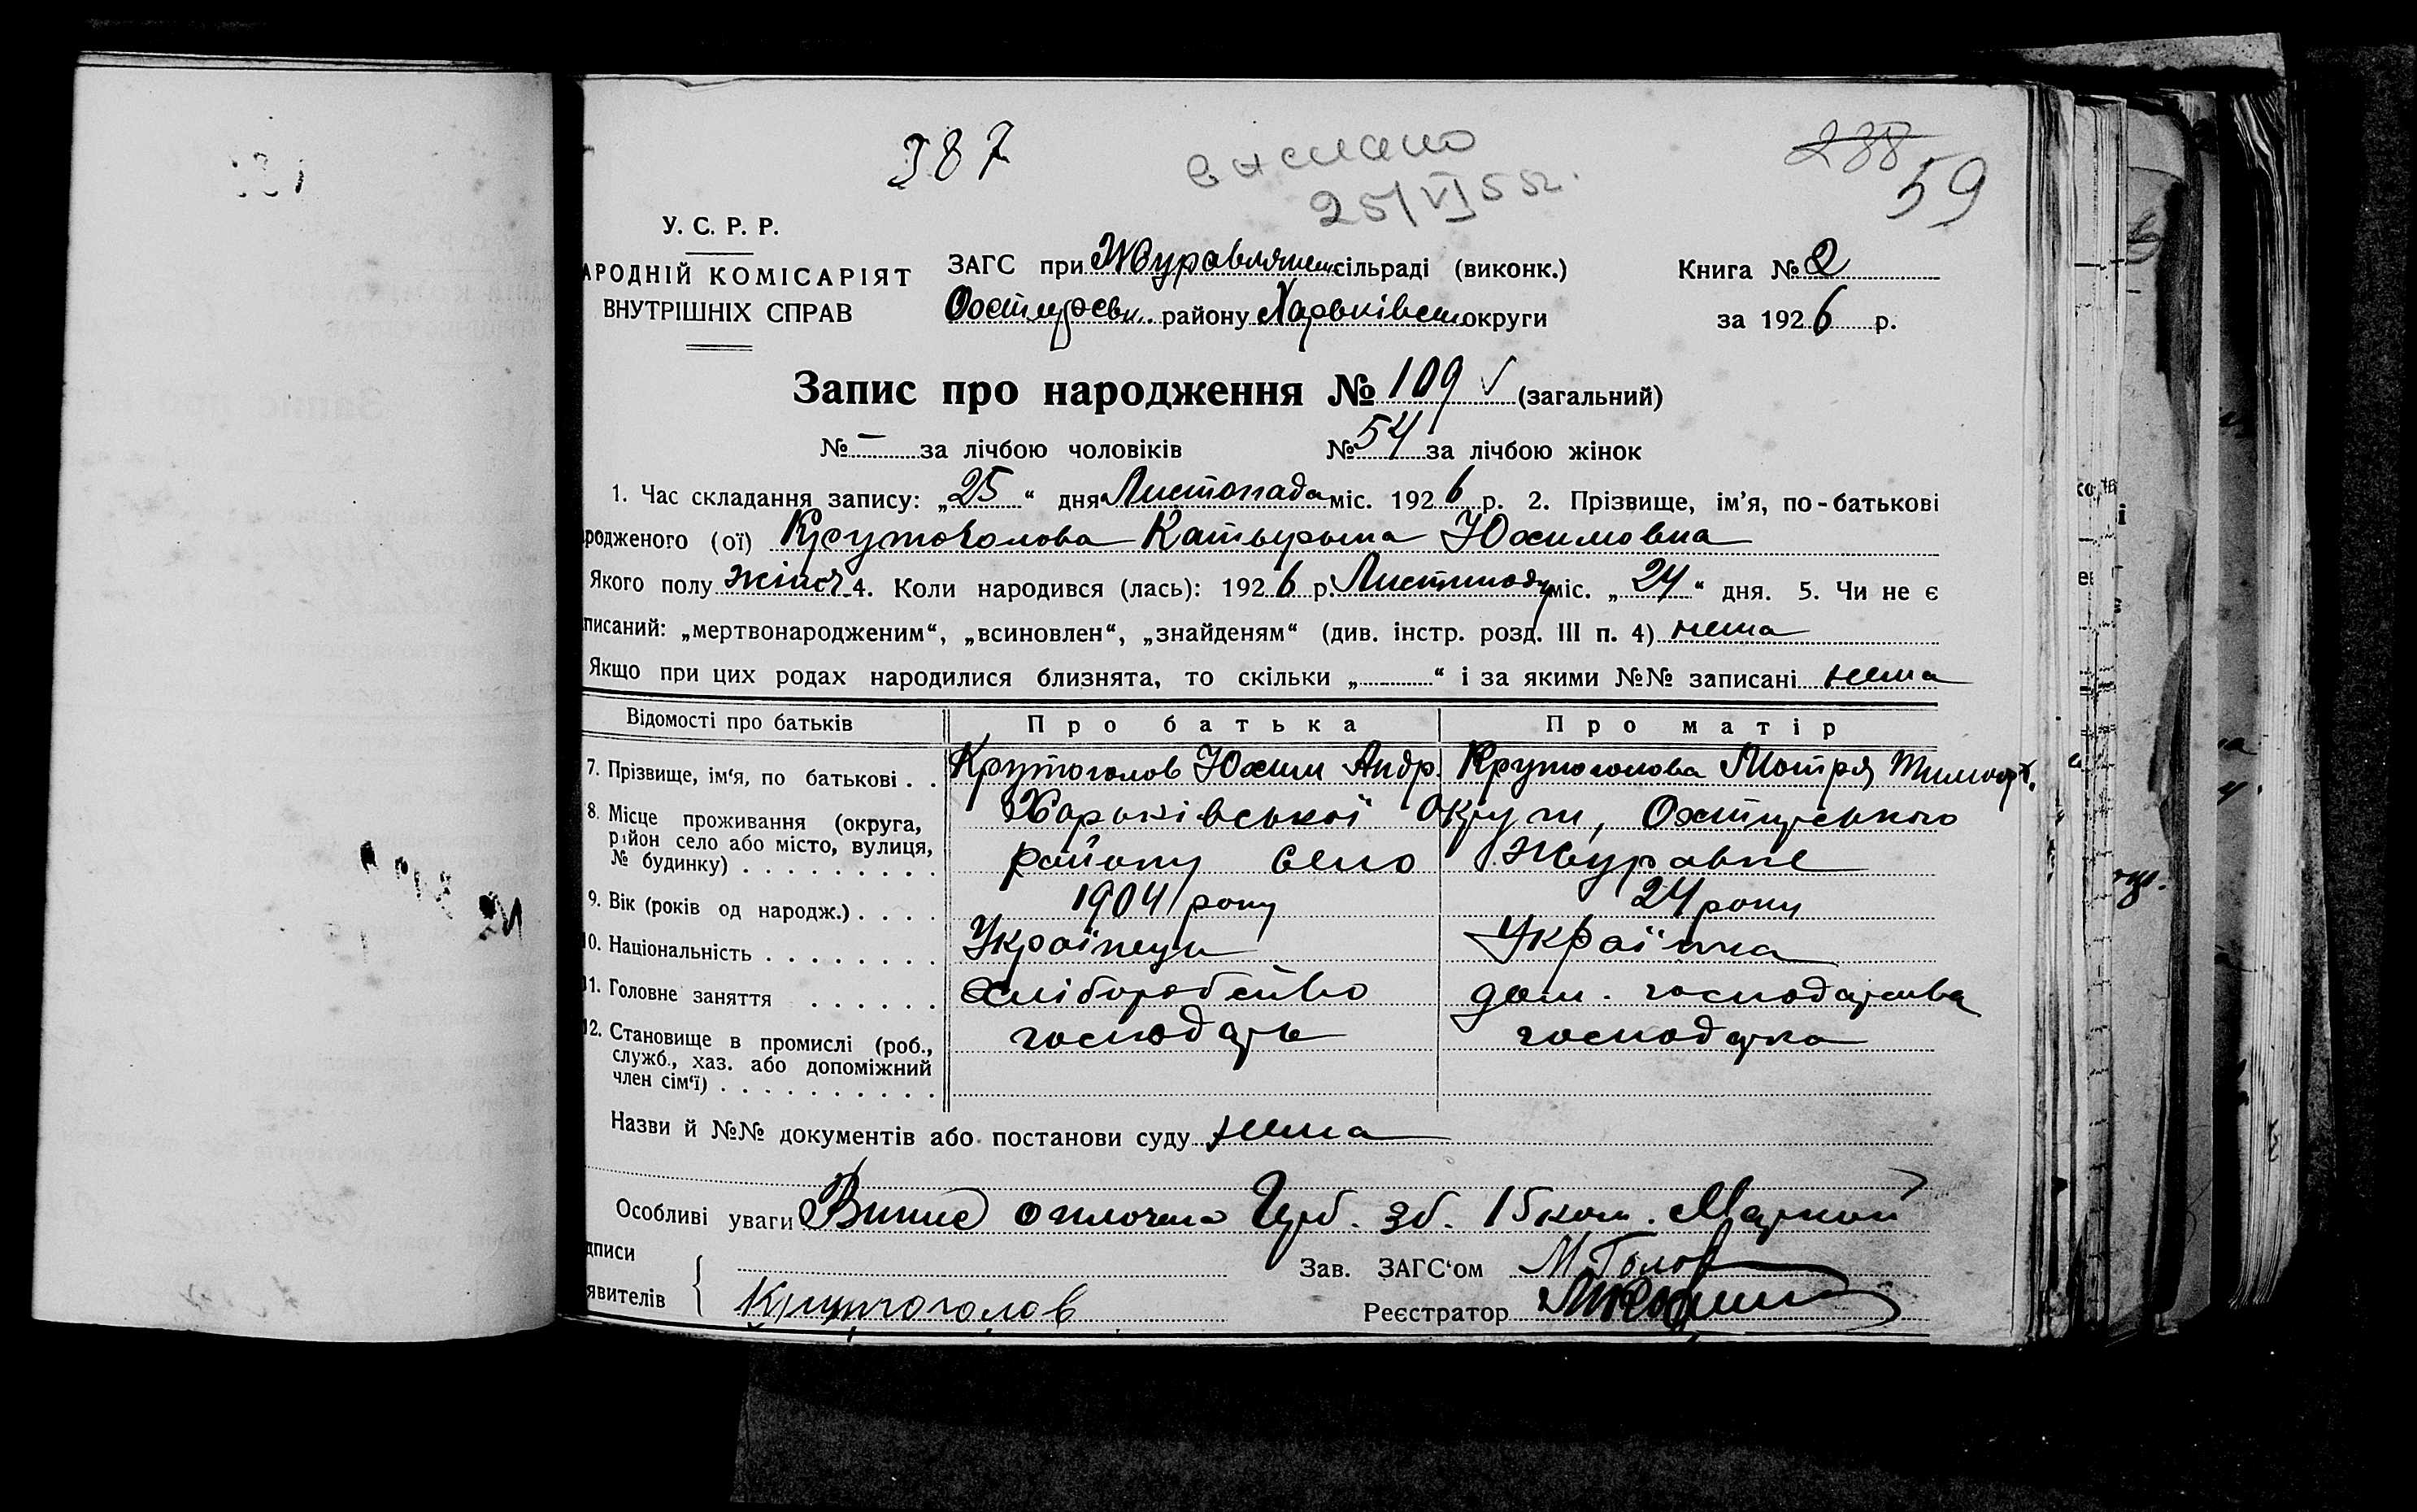 387
вислано
25/VI 55г.
288
59
У. С. Р. Р.
АРОДНІЙ КОМІСАРІЯТ
ВНУТРІШНІХ СПРАВ
ЗАГС при Журавлянськ. сільраді (виконк.)
Охтирськ. району Харьківськ округи
Книга № 2
за 1926 р.
Запис про народження № 109 (загальний)
№ — за лічбою чоловіків № 54 за лічбою жінок
1. Час складання запису: „25“ дня Листопада міс. 1926 р. 2. Прізвище, ім'я, по-батькові
родженого (ої) Крутоголова Катырына Юхимовна
Якого полу жіноч. 4. Коли народився (лась): 1926 р. Листопаду міс. „24“ дня. 5. Чи не є
писаний: „мертвонародженим“, „всиновлен“, „знайденям“ (див. інстр. розд. III п. 4) нема
Якщо при цих родах народилися близнята, то скільки „.........“ і за якими №№ записані нема
Відомості про батьків Про батька Про матір
7. Прізвище, ім'я, по батькові . . Крутоголов Юхим Андр. Крутоголова Мотря Тимоф.
8. Місце проживання (округа, Харьківської Округи, Охтирського
район село або місто, вулиця,
№ будинку) . . . . . . . . . району село Журавне
9. Вік (років од народж.) . . . . 1904 року 24 року
10. Національність . . . . . . . . Українець Українка
11. Головне заняття . . . . . . Хліборобство дом. господарства
12. Становище в промислі (роб., господарь господарка
служб., хаз. або допоміжний
член сім'ї) . . . . . . . . . .
Назви й №№ документів або постанови суду нема
Особливі уваги Випис оплочено Герб. зб. 15 коп. Маркой
дписи
явителів Крутоголов
Зав. ЗАГС'ом
Реєстратор